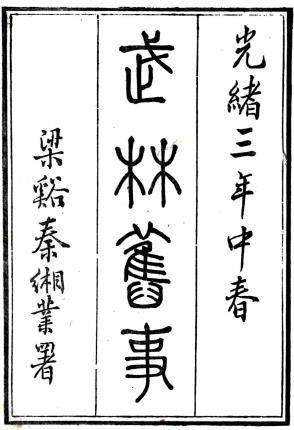 光緒三年中春
武林舊事
梁谿秦緗業署